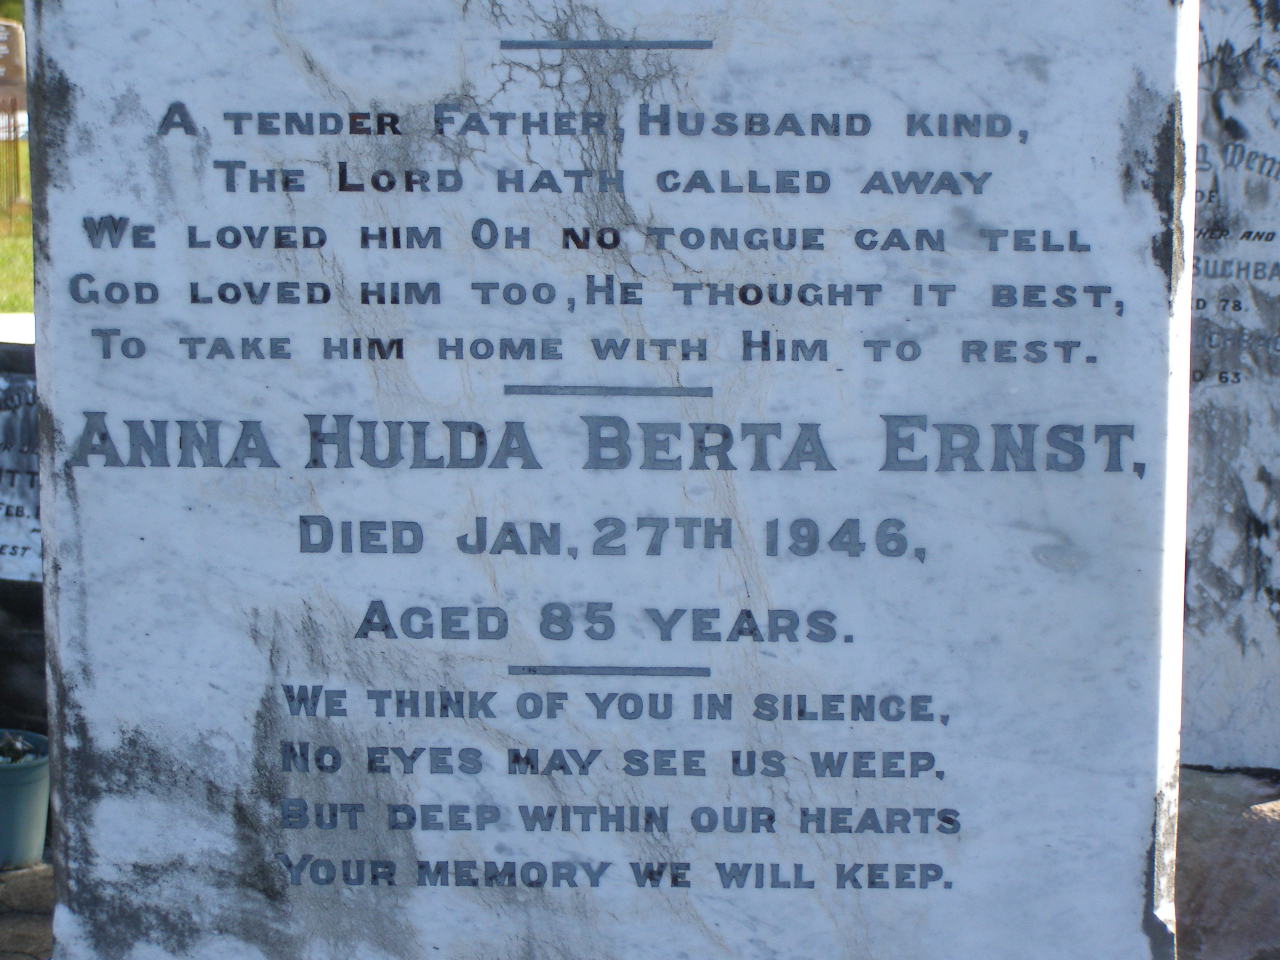 A TENDER FATHER, HUSBAND KIND,
THE LORD HATH CALLED AWAY
WE LOVED HIM OH NO TONGUE CAN TELL
GOD LOVED HIM TOO, HE THOUGHT IT BEST,
TO TAKE HIM HOME WITH HIM TO REST.
ANNA HULDA BERTA ERNST,
DIED JAN. 27TH 1946,
AGED 85 YEARS.
WE THINK OF YOU IN SILENCE,
NO EYES MAY SEE US WEEP,
BUT DEEP WITHIN OUR HEARTS
YOUR MEMORY WE WILL KEEP.
OF
AND
78.
63
FEB.